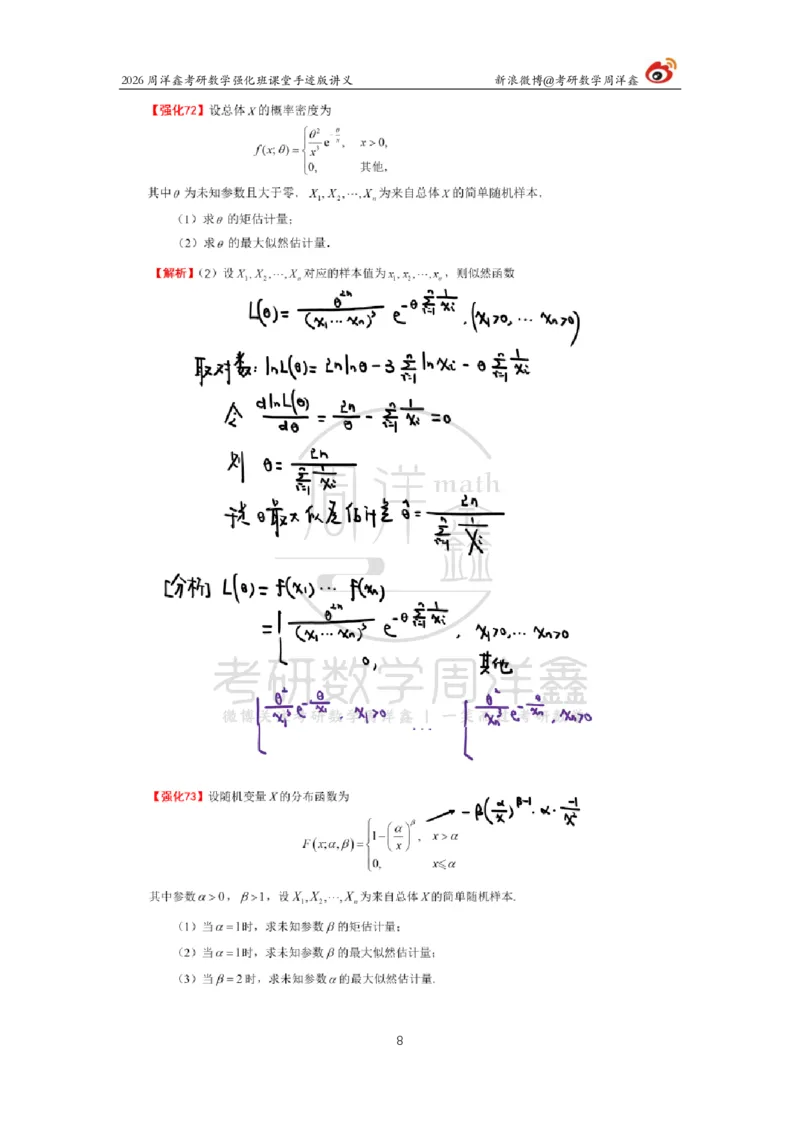 2026 周洋鑫考研数学强化班课堂手迹版讲义 新浪微博@考研数学周洋鑫
【强化72】设总体 X 的概率密度为
f(x;θ)={ θ²/x³ e^{-θ/x}, x>0,
0, 其他,
其中 θ 为未知参数且大于零. X₁,X₂,⋯,Xₙ 为来自总体 X 的简单随机样本.
(1)求 θ 的矩估计量;
(2)求 θ 的最大似然估计量.
【解析】(2)设 X₁,X₂,⋯,Xₙ 对应的样本值为 x₁,x₂,⋯,xₙ, 则似然函数
L(θ)= θ²ⁿ/(x₁⋯xₙ)³ e^{-θ∑_{i=1}^{n} 1/xᵢ}, (x₁>0,⋯xₙ>0)
取对数: lnL(θ)= 2nlnθ-3∑_{i=1}^{n} lnxᵢ-θ∑_{i=1}^{n} 1/xᵢ
令 dlnL(θ)/dθ = 2n/θ - ∑_{i=1}^{n} 1/xᵢ =0
则 θ= 2n/∑_{i=1}^{n} 1/xᵢ
于是 θ 最大似然估计量 θ̂= 2n/∑_{i=1}^{n} 1/Xᵢ
周洋 math 鑫
[分析] L(θ)= f(x₁)⋯ f(xₙ)
={ θ²ⁿ/(x₁⋯xₙ)³ e^{-θ∑_{i=1}^{n} 1/xᵢ}, x₁>0,⋯ xₙ>0
0, 其他
考研数学周洋鑫
{ θ²/x₁³ e^{-θ/x₁}, x₁>0 ⋯ { θ²/xₙ³ e^{-θ/xₙ}, xₙ>0
【强化73】设随机变量 X 的分布函数为
F(x;α,β)={ 1-(α/x)^β, x>α → -β(α/x)^{β-1}·α·-1/x²
0, x⩽α
其中参数 α>0, β>1, 设 X₁,X₂,⋯,Xₙ 为来自总体 X 的简单随机样本.
(1)当 α=1时, 求未知参数 β 的矩估计量;
(2)当 α=1时, 求未知参数 β 的最大似然估计量;
(3)当 β=2 时, 求未知参数 α 的最大似然估计量.
8